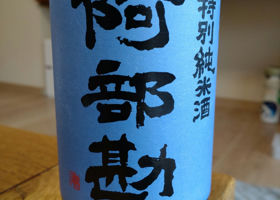 特別純米酒
阿部勘